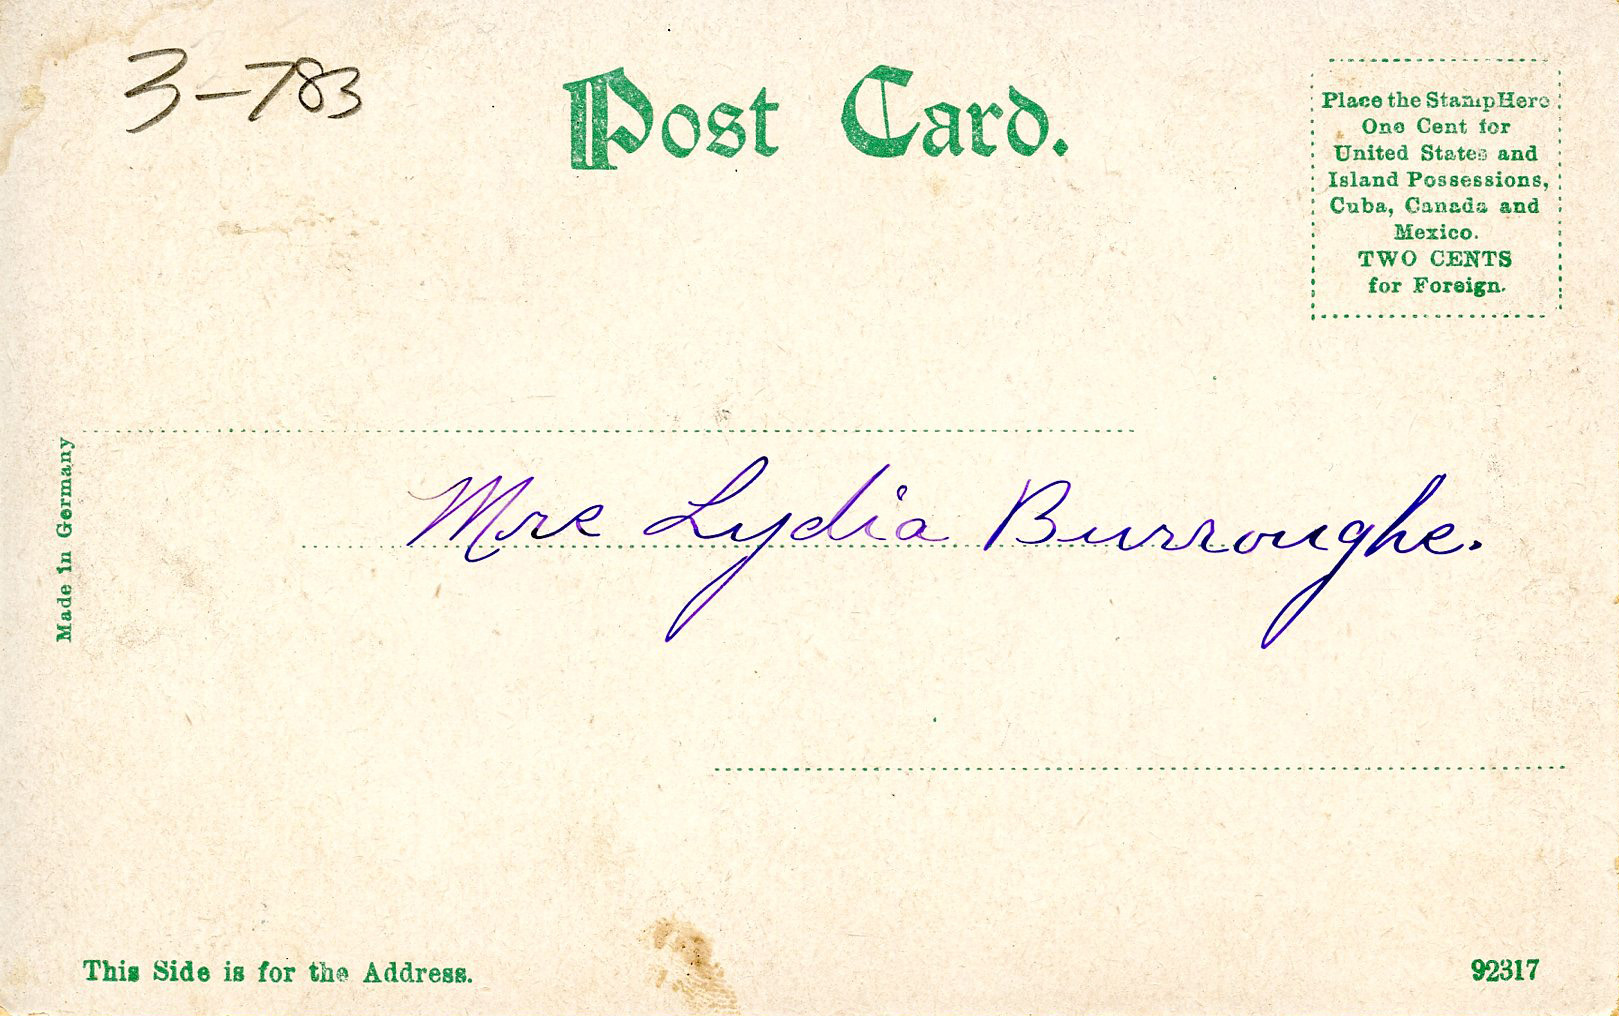 3-783
Post Card.
Place the Stamp Here
One Cent for
United States and
Island Possessions,
Cuba, Canada and
Mexico.
TWO CENTS
for Foreign.
Made in Germany
Mrs Lydia Burroughs.
This Side is for the Address.
92317